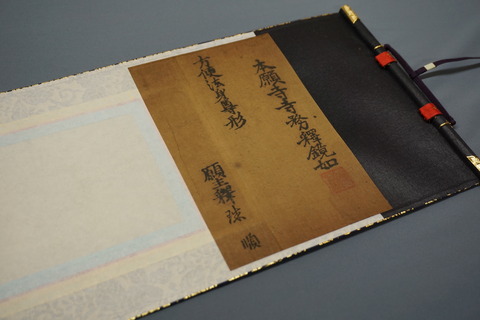 本願寺寺務釋鏡如
方便法身尊形
願主釋珠順